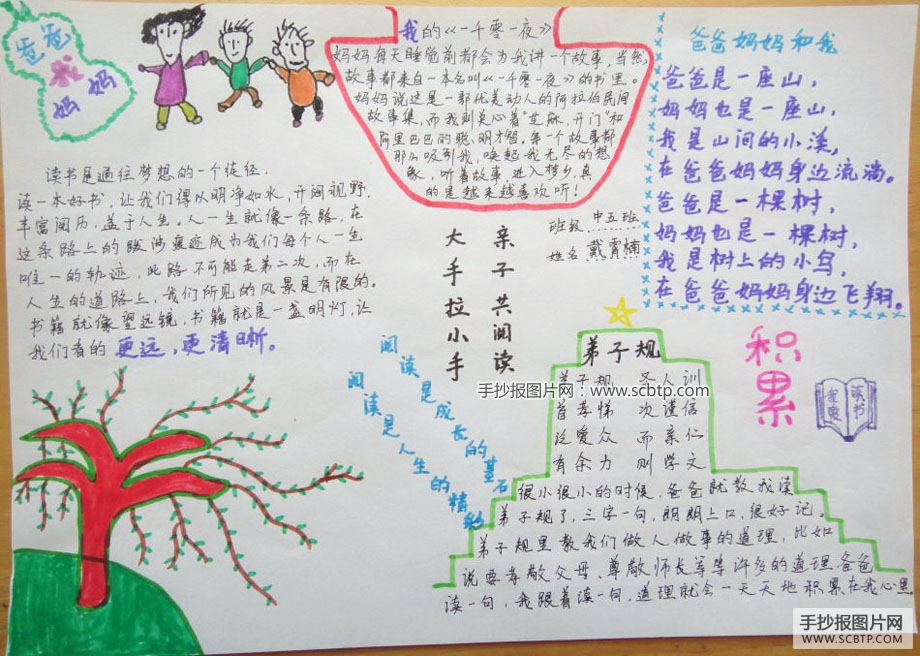 爸爸
我
妈妈
我的《一千零一夜》
妈妈每天睡觉前都会为我讲一个故事，当然，
故事都来自一本名叫《一千零一夜》的书里。
妈妈说这是一部优美动人的阿拉伯民间
故事集，而我则关心着“芝麻，开门”和
阿里巴巴的聪明才智。每一个故事都
那么吸引我，唤起我无尽的想
象，听着故事进入梦乡，真
的是越来越喜欢听！
爸爸妈妈和我
爸爸是一座山，
妈妈也是一座山，
我是山间的小溪，
在爸爸妈妈身边流淌。
爸爸是一棵树，
妈妈也是一棵树，
我是树上的小鸟，
在爸爸妈妈身边飞翔。
读书是通往梦想的一个途径，
读一本好书，让我们得以明净如水，开阔视野，
丰富阅历，益于人生。人一生就像一条路，在
这条路上的跋涉痕迹成为我们每个人一生
唯一的轨迹，此路不可能走第二次，而在
人生的道路上，我们所见的风景是有限的。
书籍就像望远镜，书籍就是一盏明灯，让
我们看的更远，更清晰。
班级 中五班
姓名 戴霄楠
亲子共阅读
大手拉小手
阅读是成长的基石
阅读是人生的精彩
弟子规
弟子规 圣人训
首孝悌 次谨信
泛爱众 而亲仁
有余力 则学文
很小很小的时候，爸爸就教我读
弟子规了，三字一句，朗朗上口，很好记。
弟子规里教我们做人做事的道理，比如
说要孝敬父母、尊敬师长等等许多的道理。爸爸
读一句，我跟着读一句，道理就会一天天地积累在我心里。
积累
读书
手抄报图片网：www.scbtp.com
手抄报图片网
WWW.SCBTP.COM